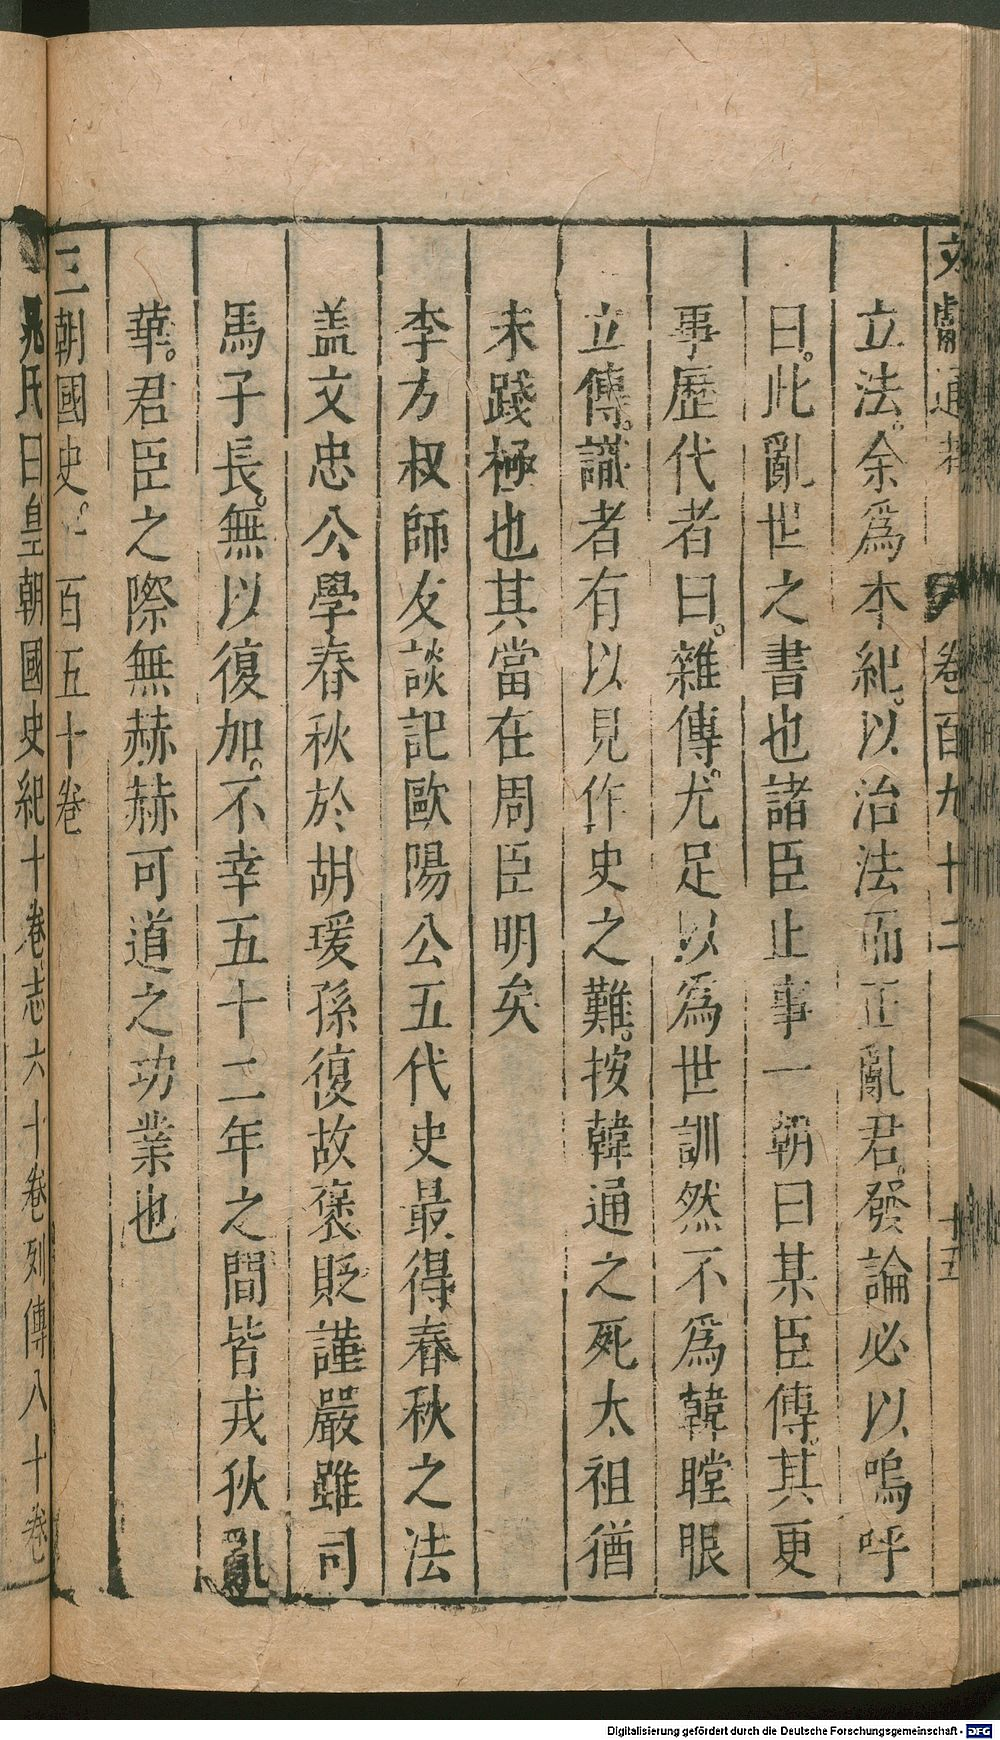 文獻通考　卷百九十二　十五
立法。余爲本紀。以治法而正亂君。發論必以嗚呼
曰。此亂世之書也諸臣止事一朝曰某臣傳。其更
事歷代者曰。雜傳。尤足以爲世訓然不爲韓瞠眼
立傳。識者有以見作史之難。按韓通之死太祖猶
未踐極也其當在周臣明矣
李方叔師友談記歐陽公五代史最得春秋之法
盖文忠公學春秋於胡瑗孫復故褒貶謹嚴雖司
馬子長。無以復加。不幸五十二年之間皆戎狄亂
華。君臣之際無赫赫可道之功業也
三朝國史。一百五十卷
晁氏曰皇朝國史紀十卷志六十卷列傳八十卷
Digitalisierung gefördert durch die Deutsche Forschungsgemeinschaft - DFG